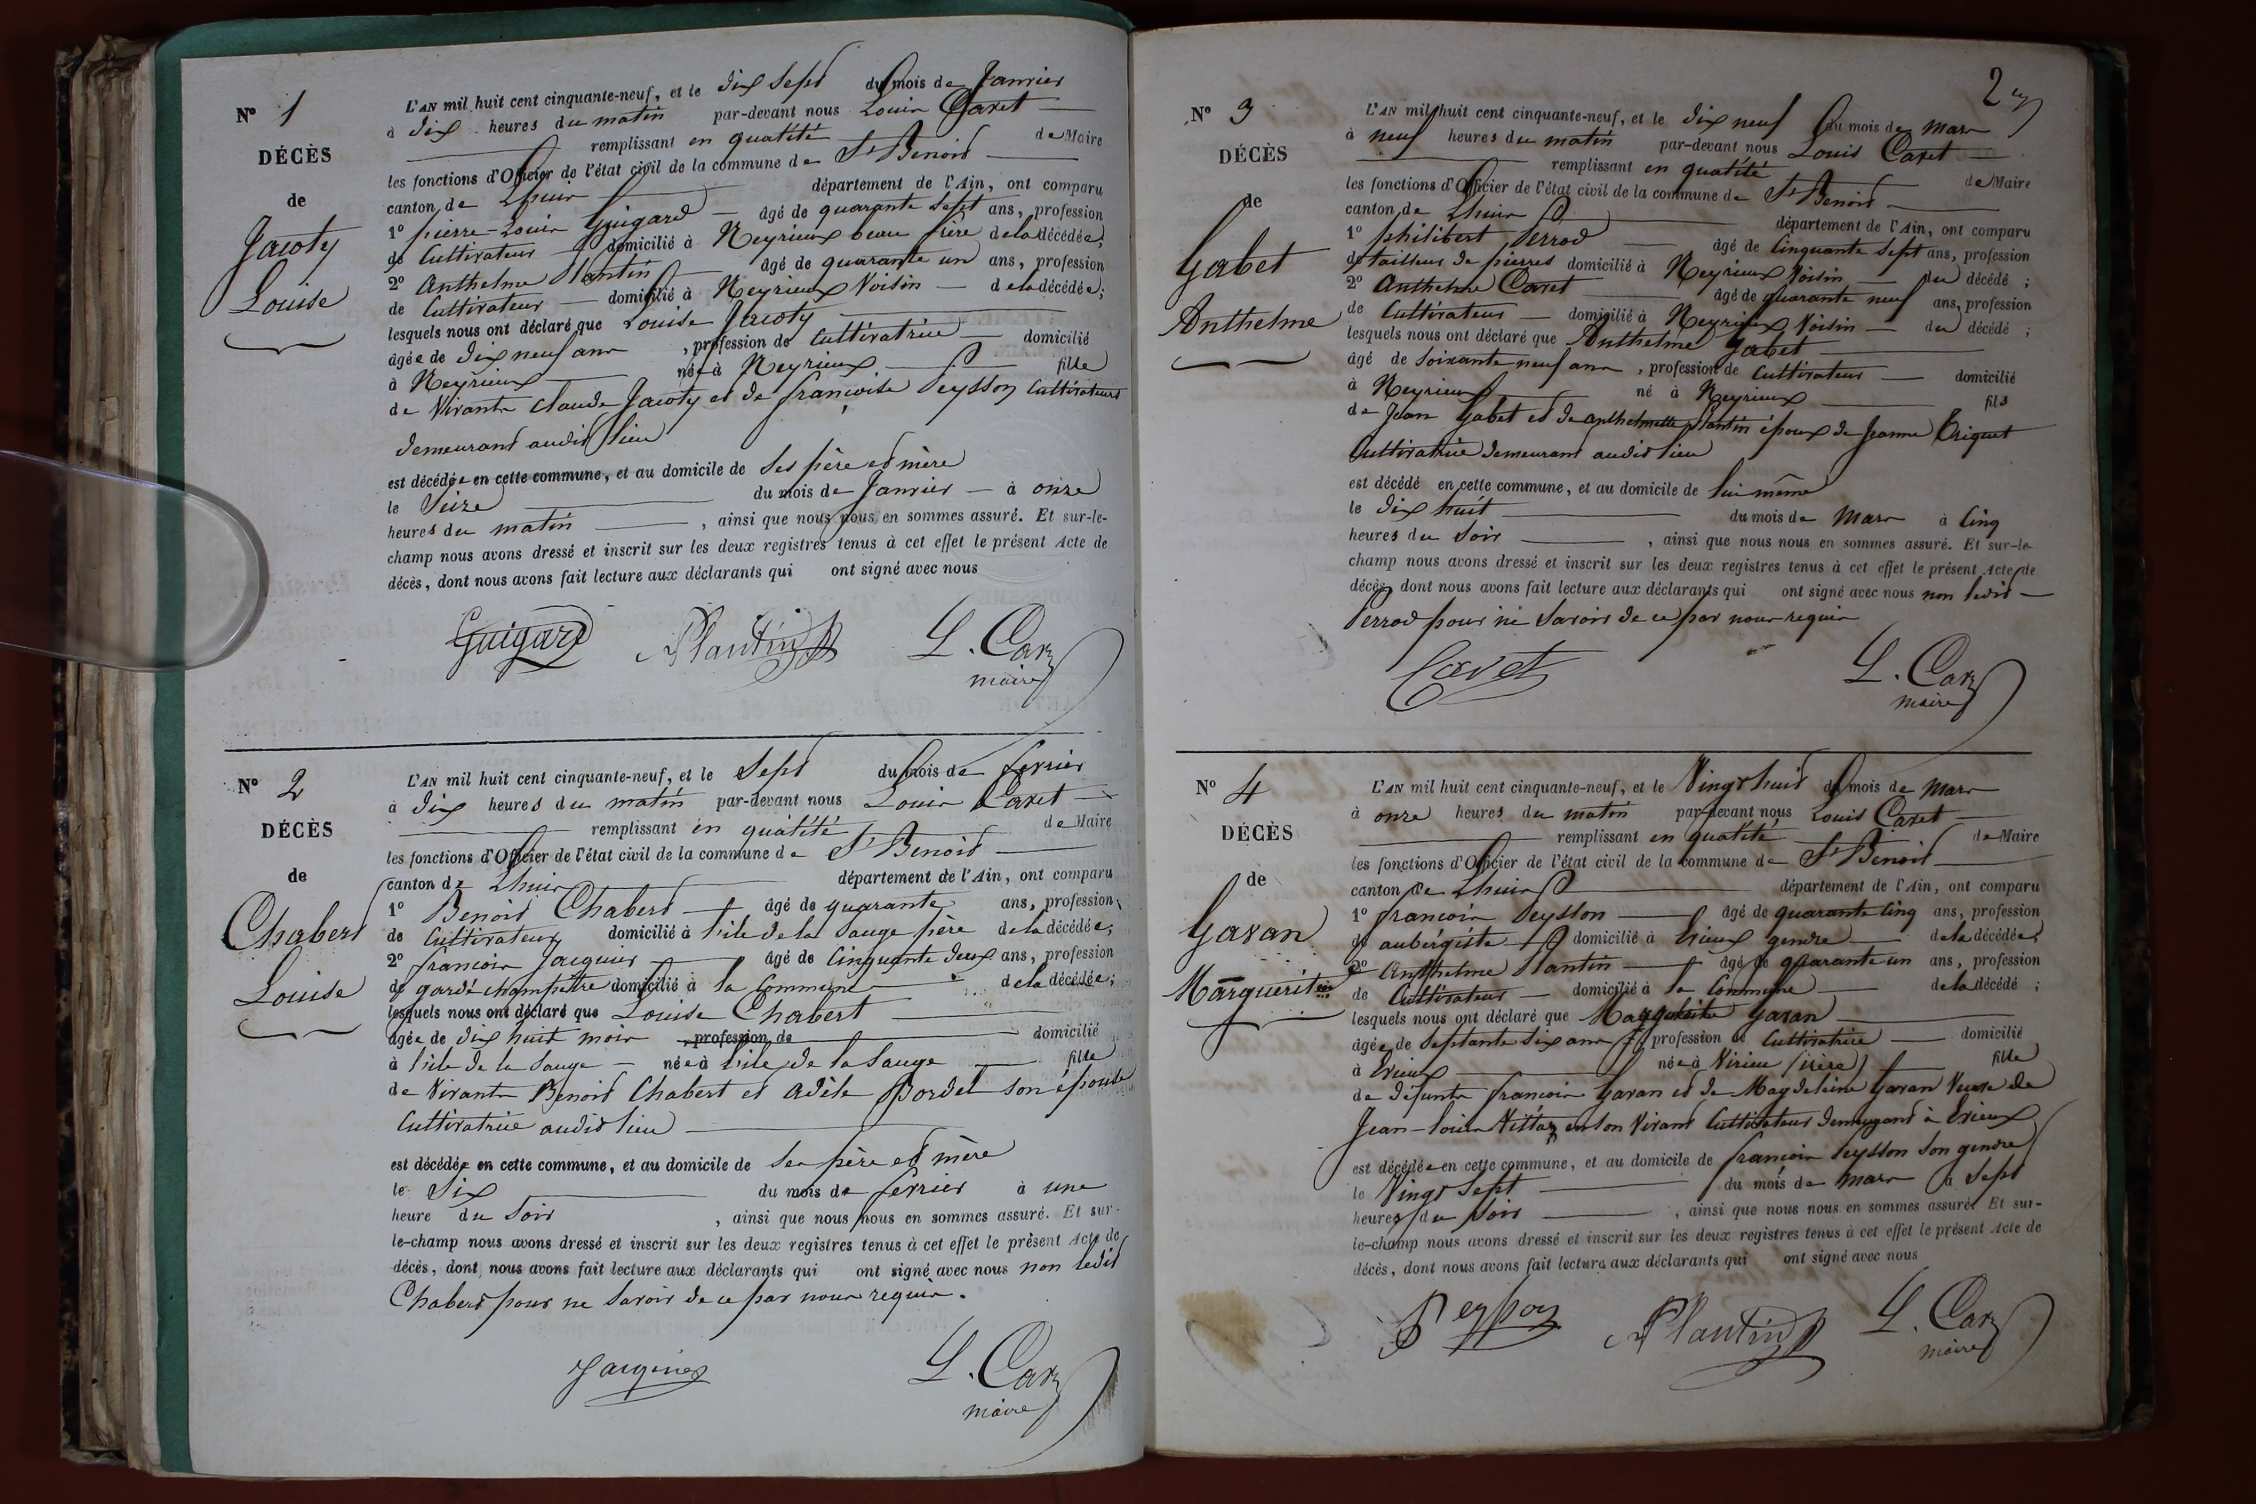 N° 1
DÉCÈS
de
Jacoty
Louise
L'AN mil huit cent cinquante-neuf, et le dix sept du mois de Janvier
à dix heures du matin par-devant nous Louis Caret
remplissant en qualité de Maire
les fonctions d'Officier de l'état civil de la commune de St Benoit
canton de Lhuis département de l'Ain, ont comparu
1° pierre-Louis Guigard âgé de quarante sept ans, profession
de Cultivateur domicilié à Neyrieux beau frère de la décédée;
2° Anthelme Plantin âgé de quarante un ans, profession
de Cultivateur domicilié à Neyrieux Voisin de la décédée;
lesquels nous ont déclaré que Louise Jacoty
âgée de dix neuf ans, profession de Cultivatrice domicilié
à Neyrieux née à Neyrieux fille
de Vivants Claude Jacoty et de françoise Peysson Cultivateurs
demeurant audit lieu
est décédée en cette commune, et au domicile de Ses père et mère
le Seize du mois de Janvier à onze
heures du matin, ainsi que nous nous en sommes assuré. Et sur-le-
champ nous avons dressé et inscrit sur les deux registres tenus à cet effet le présent Acte de
décès, dont nous avons fait lecture aux déclarants qui ont signé avec nous
Guigard APlantin L. Car
maire
N° 2
DÉCÈS
de
Chabert
Louise
L'AN mil huit cent cinquante-neuf, et le Sept du mois de fevrier
à dix heures du matin par-devant nous Louis Caret
remplissant en qualité de Maire
les fonctions d'Officier de l'état civil de la commune de St Benoit
canton de Lhuis département de l'Ain, ont comparu
1° Benoit Chabert âgé de quarante ans, profession
de Cultivateur domicilié à l'ile de la Sauge père de la décédée;
2° francois Jacquier âgé de Cinquante deux ans, profession
de garde champêtre domicilié à la Commune de la décédée;
lesquels nous ont déclaré que Louise Chabert
âgée de dix huit mois profession de domicilié
à l'ile de la Sauge née à l'ile de la Sauge fille
de Vivants Benoit Chabert et Adèle Bordel son épouse
Cultivatrice audit lieu
est décédée en cette commune, et au domicile de Ses père et mère
le Six du mois de fevrier à une
heure du Soir, ainsi que nous nous en sommes assuré. Et sur-
le-champ nous avons dressé et inscrit sur les deux registres tenus à cet effet le présent Acte de
décès, dont nous avons fait lecture aux déclarants qui ont signé avec nous non ledit
Chabert pour ne Savoir de ce par nous requis.
Jacquier L. Car
maire
2
N° 3
DÉCÈS
de
Gabet
Anthelme
L'AN mil huit cent cinquante-neuf, et le dix neuf du mois de mars
à neuf heures du matin par-devant nous Louis Caret
remplissant en qualité de Maire
les fonctions d'Officier de l'état civil de la commune de St Benoit
canton de Lhuis département de l'Ain, ont comparu
1° philibert Perrod âgé de Cinquante sept ans, profession
de tailleur de pierres domicilié à Neyrieux Voisin du décédé;
2° Anthelme Caret âgé de quarante neuf ans, profession
de Cultivateur domicilié à Neyrieux Voisin du décédé;
lesquels nous ont déclaré que Anthelme Gabet
âgé de soixante neuf ans, profession de Cultivateur domicilié
à Neyrieux né à Neyrieux fils
de Jean Gabet et de anthelmette plantin époux de Jeanne Criquet
Cultivatrice demeurant audit lieu
est décédé en cette commune, et au domicile de lui même
le dix huit du mois de mars à Cinq
heures du Soir, ainsi que nous nous en sommes assuré. Et sur-le-
champ nous avons dressé et inscrit sur les deux registres tenus à cet effet le présent Acte de
décès, dont nous avons fait lecture aux déclarants qui ont signé avec nous non ledit
Perrod pour ne Savoir de ce par nous requis
Caret L. Car
maire
N° 4
DÉCÈS
de
Gavan
Marguerite
L'AN mil huit cent cinquante-neuf, et le Vingt huit du mois de mars
à onze heures du matin par-devant nous Louis Caret
remplissant en qualité de Maire
les fonctions d'Officier de l'état civil de la commune de St Benoit
canton de Lhuis département de l'Ain, ont comparu
1° francois Peysson âgé de quarante Cinq ans, profession
de aubergiste domicilié à Evieux gendre de la décédée;
2° Anthelme Plantin âgé de quarante un ans, profession
de Cultivateur domicilié à la Commune de la décédé;
lesquels nous ont déclaré que Marguerite Gavan
âgée de Septante six ans profession de Cultivatrice domicilié
à Evieux née à Virieu (isère) fille
de défunts francois Gavan et de Magdeleine Gavan Veuve de
Jean-Louis Vittoz en son Vivant Cultivateur demeurant à Evieux
est décédée en cette commune, et au domicile de francois Peysson Son gendre
le Vingt Sept du mois de mars à Sept
heures du Soir, ainsi que nous nous en sommes assuré. Et sur-
le-champ nous avons dressé et inscrit sur les deux registres tenus à cet effet le présent Acte de
décès, dont nous avons fait lecture aux déclarants qui ont signé avec nous
Peysson APlantin L. Car
maire